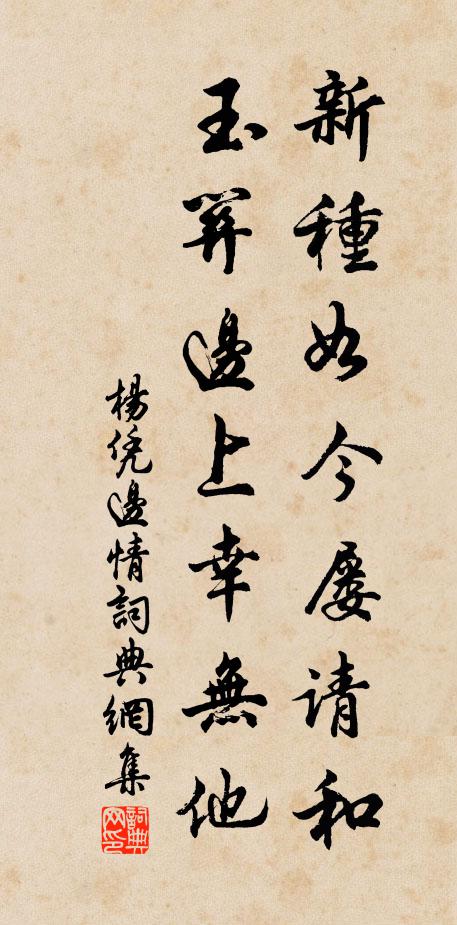 新種如今屡请和
玉関邊上幸無他
楊凭邊情詞典網集
詞典网印